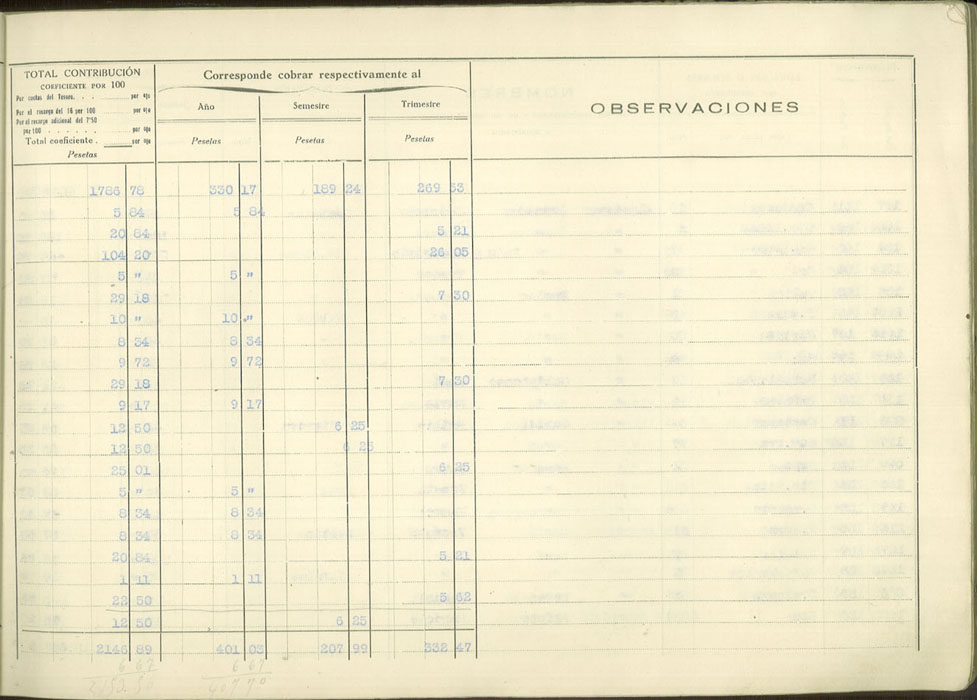 TOTAL CONTRIBUCIÓN Corresponde cobrar respectivamente al OBSERVACIONES
COEFICIENTE POR 100
Por cuotas del Tesoro. . . por %
Por el recargo del 16 por 100 por %
Por el recargo adicional del 7'50
por 100 . . . . . . por %
Total coeficiente. por %
Pesetas
Año Semestre Trimestre
Pesetas Pesetas Pesetas
1786 78 330 17 189 24 269 53
5 84 5 84
20 84 5 21
104 20 26 05
5 " 5 "
29 18 7 30
10 " 10 "
8 34 8 34
9 72 9 72
29 18 7 30
9 17 9 17
12 50 6 25
12 50 6 25
25 01 6 25
5 " 5 "
8 34 8 34
8 34 8 34
20 84 5 21
1 11 1 11
22 50 5 62
12 50 6 25
2146 89 401 03 207 99 332 47
6 67 6 67
407 70